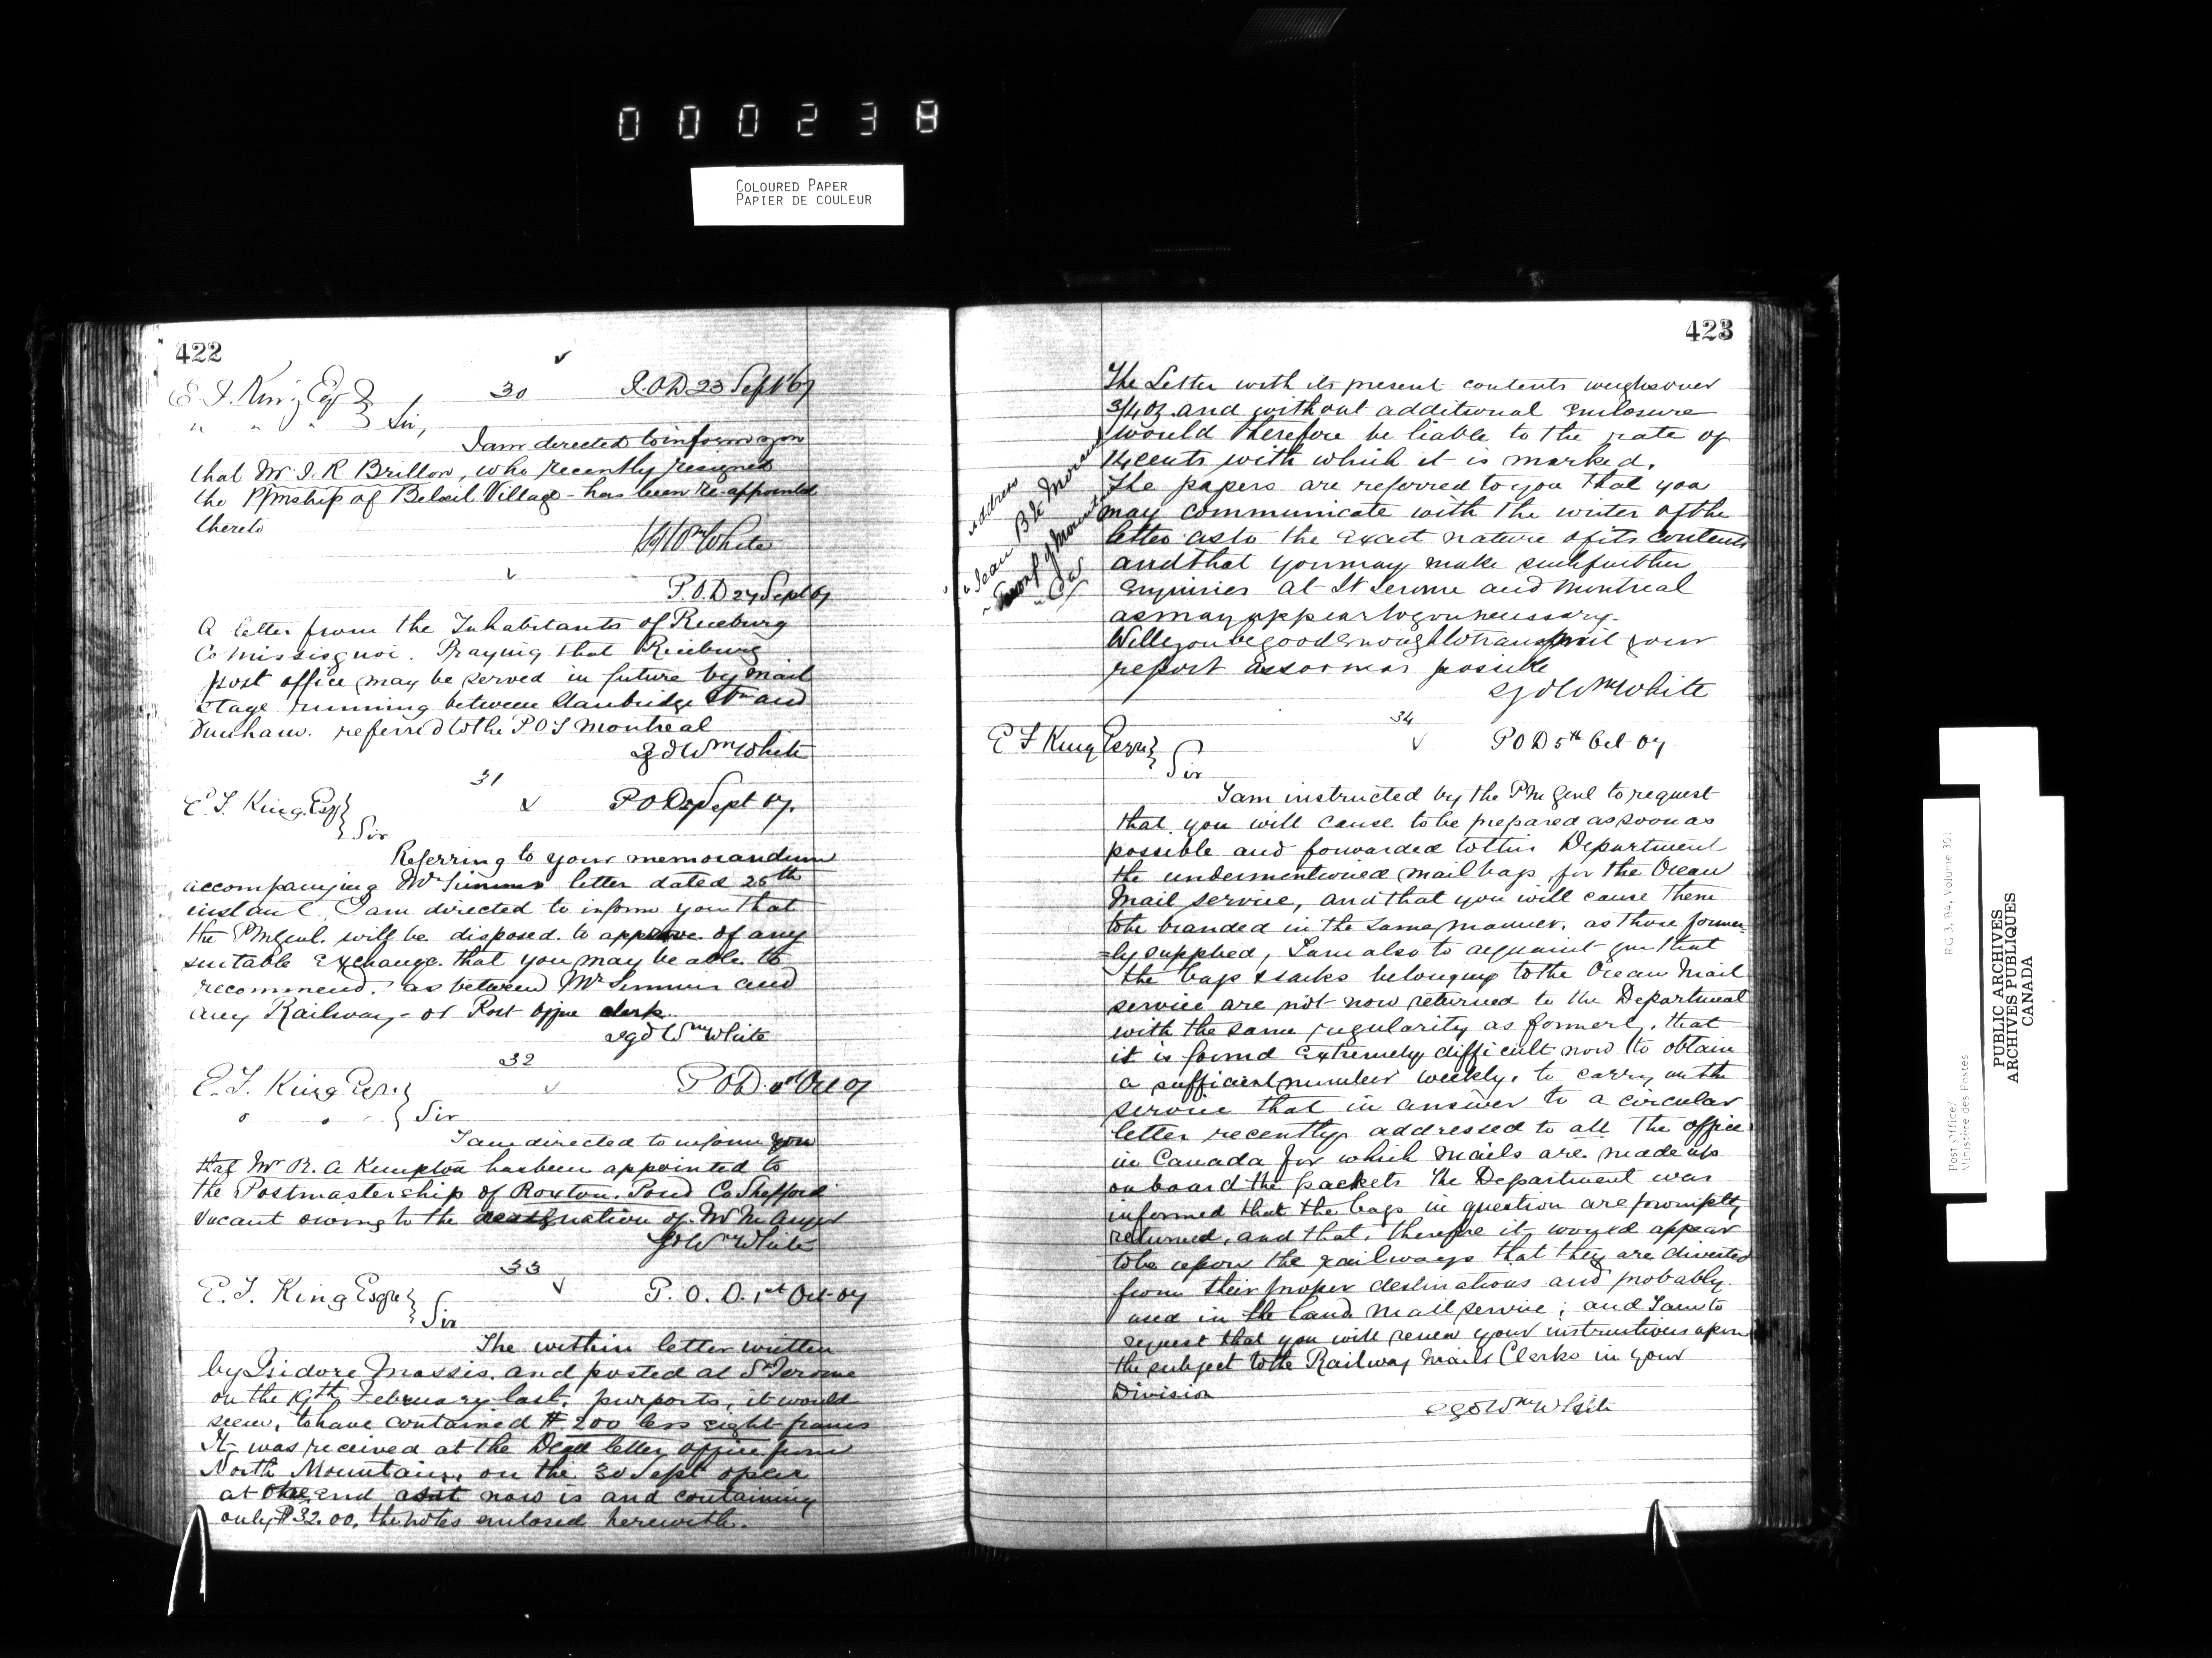 000238
COLOURED PAPER
PAPIER DE COULEUR
422
E. F. King Esq
30
P.O.D 23 Sept 67
" " " Sir,
I am directed to inform you
that Mr J. R. Brillon, who recently resigned
the Pmship of Belœil Village - has been re-appointed
thereto
Wm White
P.O.D 27 Sept 67
A letter from the Inhabitants of Riceburg
Co Missisquoi. Praying that Riceburg
post office may be served in future by mail
stage running between Stanbridge Stn and
Dunham. referred to the P O I Montreal
Sgd Wm White
31
E. F. King. Esq
P O D Sept 67.
Sir
Referring to your memorandum
accompanying Mr letter dated 25th
instant. I am directed to inform you that
the PMGenl. will be disposed. to approve. of any
suitable Exchange. that you may be able to
recommend. as between Mr and
any Railway - or Post office clerk.
sgd Wm White
32
E. F. King Esqre
P O D. 1st Oct 67
" " " Sir
I am directed to inform you
that Mr R. A Kempton has been appointed to
the Postmastership of Roxton. Pond Co Shefford
vacant owing to the resignation of. Mr
sgd Wm White
33
E. F. King Esqre
P. O. D. 1st Oct 67
Sir
The within letter written
by Isidore Massis. and posted at St Jerome
on the 19th February last. purports, it would
seem, to have contained $200 less eight francs
It was received at the Dead letter office from
North Mountain. on the 30 Sept open
at one end as it now is and containing
only $32.00, the notes enclosed herewith.
423
The Letter with its present contents weighs over
3/4 oz. and without additional Enclosure
would therefore be liable to the rate of
14 cents with which it is marked.
The papers are referred to you that you
may communicate with the writer of the
letter as to the exact nature of its contents
and that you may make such further
Enquiries at St Jerome and Montreal
as may appear to you necessary.
Will you be good enough to transmit your
report as soon as possible
sgd Wm White
address
Jean Bte
Mountain
CW
34
E F King Esqre
P O D 5th Oct 67
Sir
I am instructed by the PM Genl to request
that you will cause to be prepared as soon as
possible and forwarded to this Department
the undermentioned mail bags for the Ocean
Mail service, and that you will cause them
to be branded in the same manner. as those former=
=ly supplied, I am also to acquaint you that
the bags & sacks belonging to the Ocean Mail
service are not now returned to the Department
with the same regularity as formerly. that
it is found extremely difficult now to obtain
a sufficient number weekly. to carry on the
service that in answer to a circular
letter recently addressed to all the offices
in Canada for which mails are made up
on board the packets the Department was
informed that the bags in question are promptly
returned, and that. therefore it would appear
to be upon the railways that they are diverted
from their proper destinations and probably
used in the Land Mail service; and I am to
request that you will renew your instructions upon
the subject to the Railway Mail Clerks in your
Division
sgd Wm White
RG 3, B4, Volume 301
Post Office/
Ministère des Postes
PUBLIC ARCHIVES
ARCHIVES PUBLIQUES
CANADA